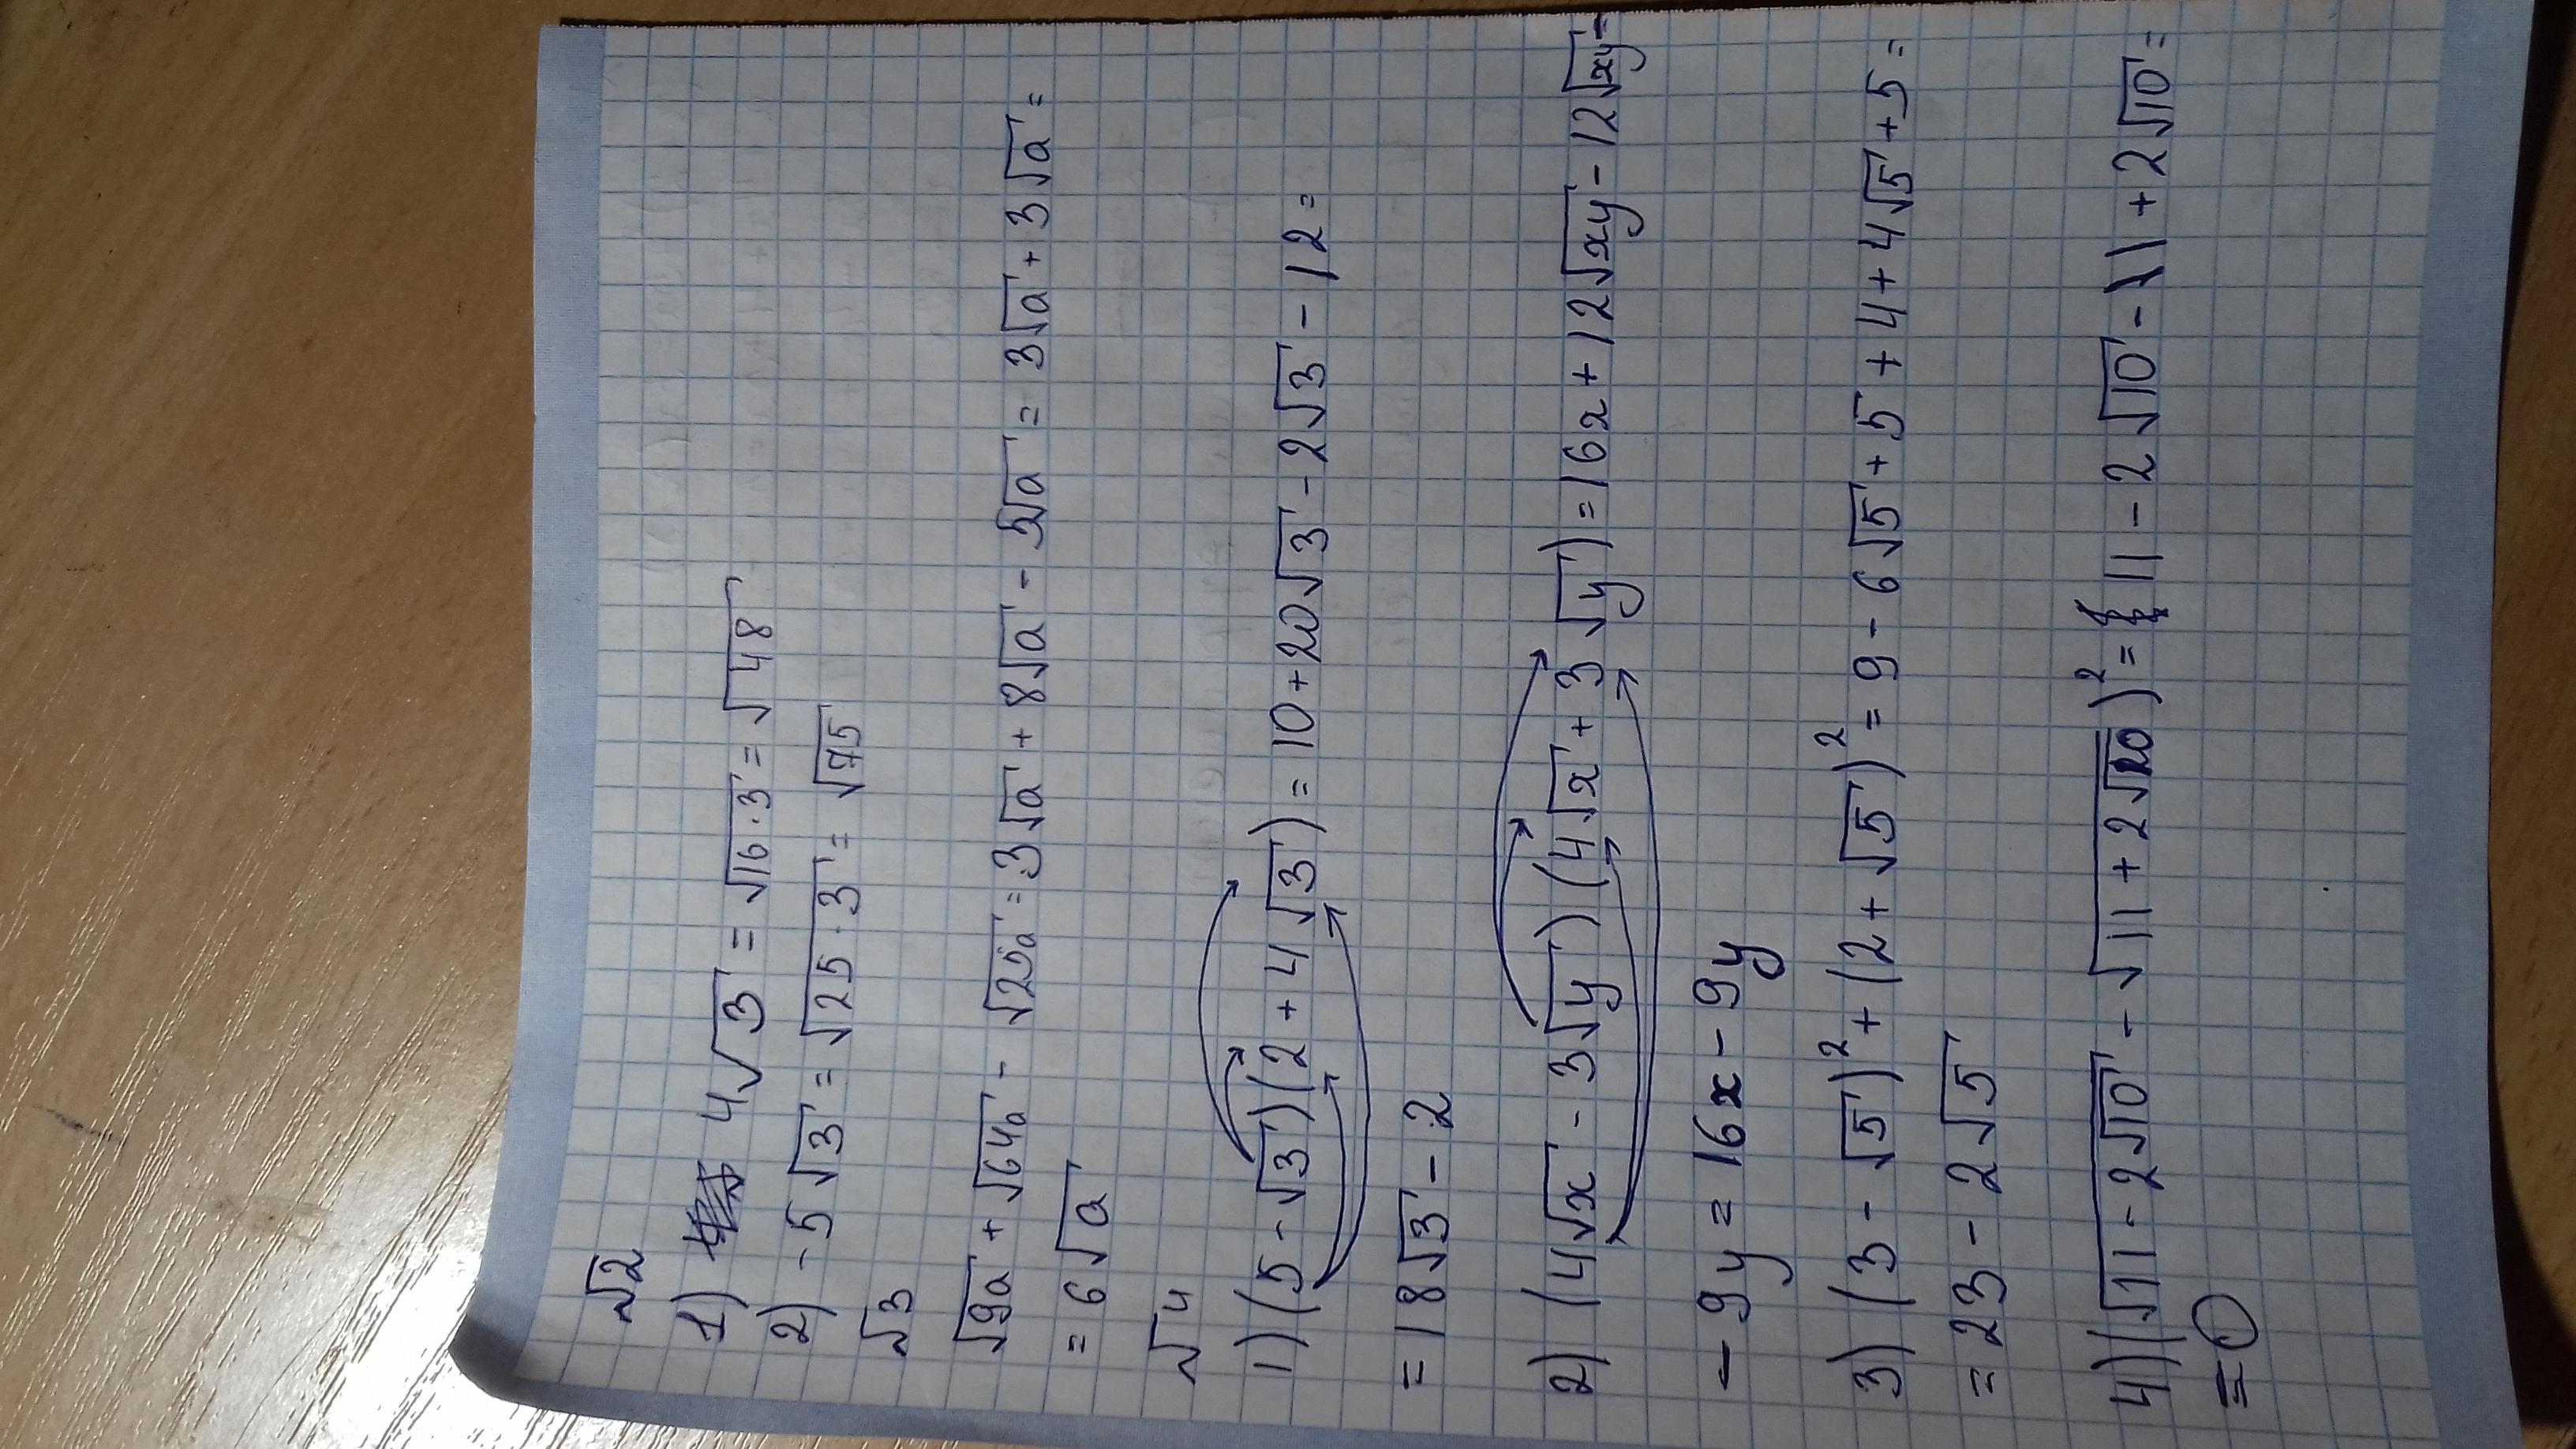 √2
1) 4√3 = √16·3 = √48
2) -5√3 = √25·3 = √75
√3
√9a + √64a - √25a = 3√a + 8√a - 5√a = 3√a + 3√a =
= 6√a
√4
1) (5 - √3)(2 + 4√3) = 10 + 20√3 - 2√3 - 12 =
= 18√3 - 2
2) (4√x - 3√y)(4√x + 3√y) = 16x + 12√xy - 12√xy -
- 9y = 16x - 9y
3) (3 - √5)² + (2 + √5)² = 9 - 6√5 + 5 + 4 + 4√5 + 5 =
= 23 - 2√5
4) (√11 - 2√10 - √11 + 2√10)² = 11 - 2√10 - 11 + 2√10 =
= 0